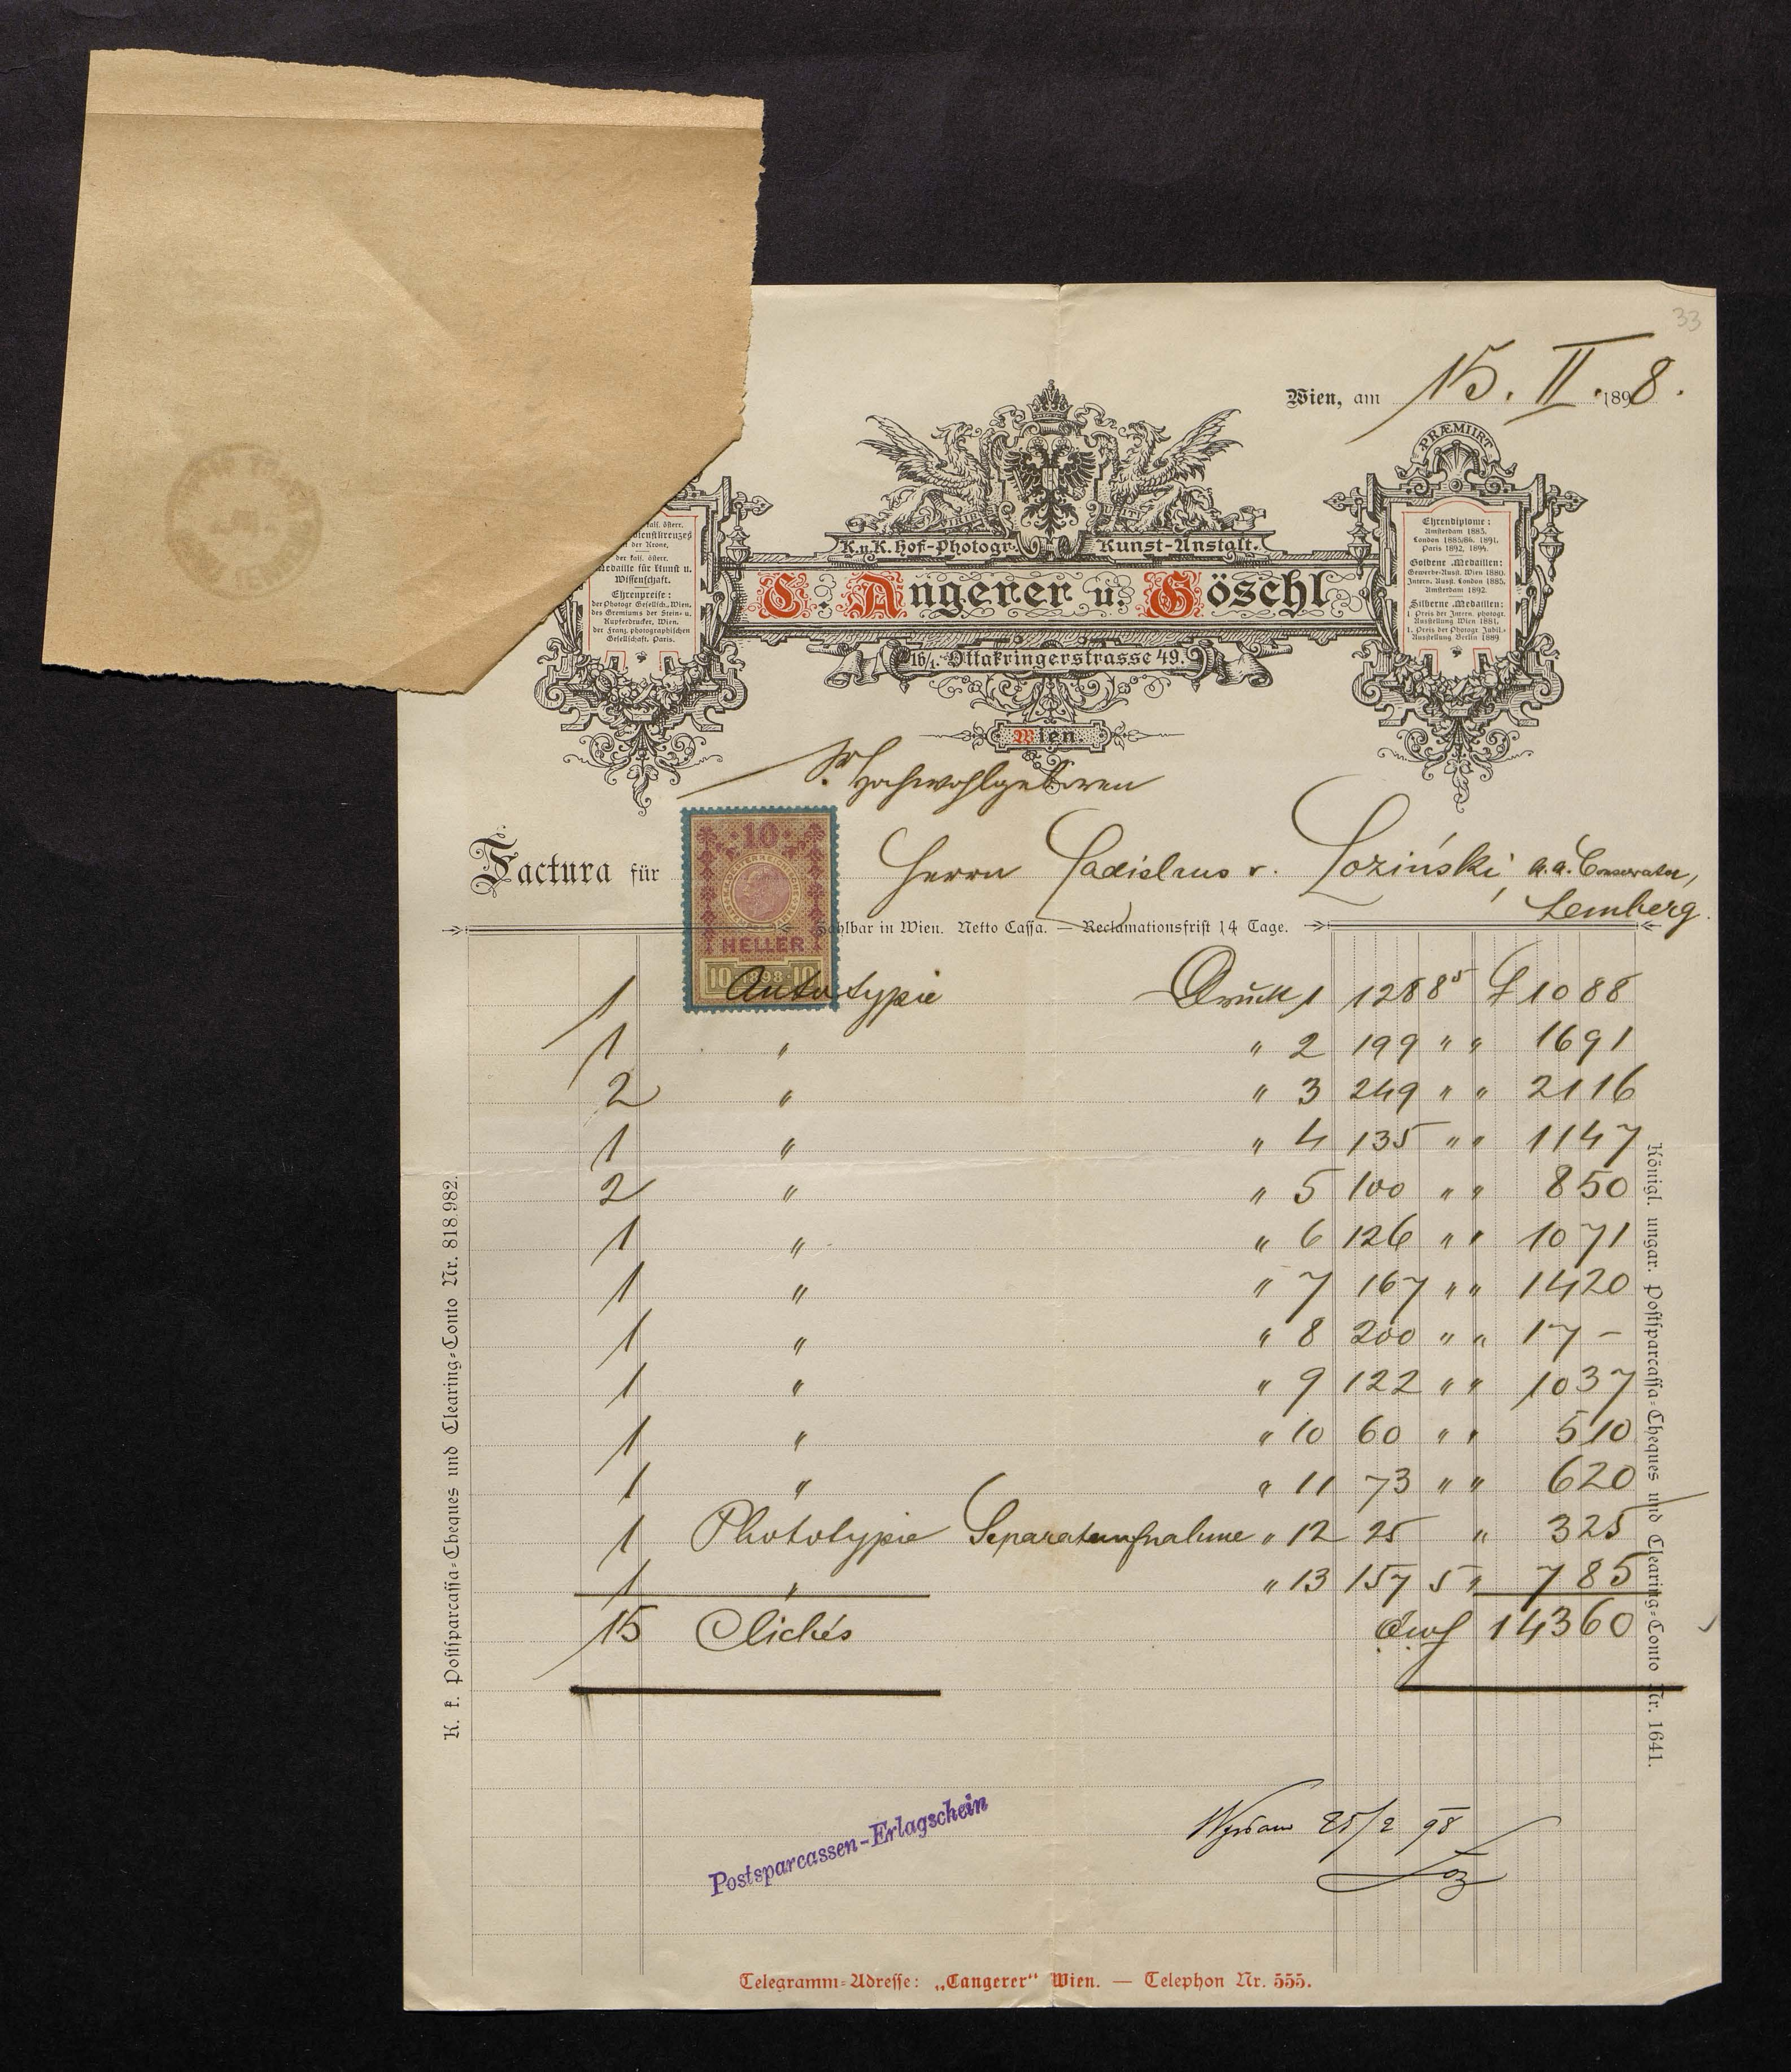 33
Wien, am 15. II. 1898.
PRÆMIIRT
K.u.K. Hof-Photogr. Kunst-Anstalt.
C. Angerer u. Göschl
16/1. Ottakringerstrasse 49.
Wien.
kais. österr.
der Krone.
der kais. österr.
Medaille für Kunst u.
Wissenschaft.
Ehrenpreise:
der Photogr. Gesellsch. Wien,
des Gremiums der Stein- u.
Kupferdrucker, Wien.
der Franz. photographischen
Gesellschaft, Paris.
Ehrendiplome:
Amsterdam 1883.
London 1885/86. 1891.
Paris 1892, 1894.
Goldene Medaillen:
Gewerbe-Ausst. Wien 1880.
Intern. Ausst. London 1885.
Amsterdam 1892.
Silberne Medaillen:
1. Preis der Intern. photogr.
Ausstellung Wien 1881.
1. Preis der Photogr. Jubil.-
Ausstellung Berlin 1889
Sr Hochwohlgeboren
Factura für Herrn Ladislaus v. Łoziński, Conservator,
Lemberg.
10
HELLER
10 1898 10
Zahlbar in Wien. Netto Cassa. — Reclamationsfrist 14 Tage.
1 Autotypie Druck 1 128 8⁵ 1088
1 " " 2 199 " " 1691
2 " " 3 249 " " 2116
1 " " 4 135 " " 1147
2 " " 5 100 " " 850
1 " " 6 126 " " 1071
1 " " 7 167 " " 1420
1 " " 8 200 " " 17 –
1 " " 9 122 " " 1037
1 " " 10 60 " " 510
1 " " 11 73 " " 620
1 Phototypie Separataufnahme " 12 25 " 325
1 " " 13 157 5 " 785
15 Clichés 14360
K. k. Postsparcassa-Cheques und Clearing-Conto Nr. 818.982.
Königl. ungar. Postsparcassa-Cheques und Clearing-Conto Nr. 1641.
Postsparcassen-Erlagschein
25/2 98
Łoz
Telegramm-Adresse: „Cangerer“ Wien. — Telephon Nr. 555.